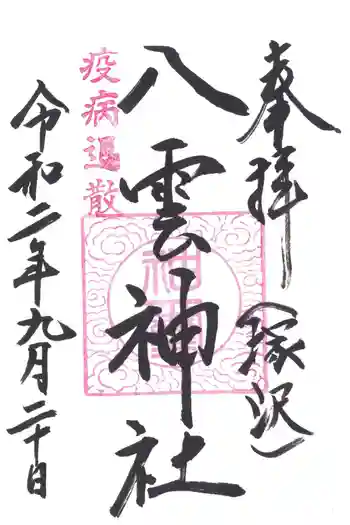 奉拝（塚沢）
八雲神社
疫病退散
令和二年九月二十日